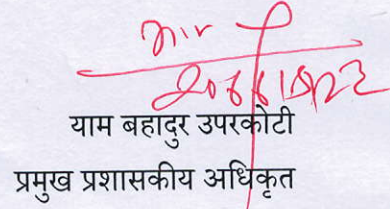 याम बहादुर उपरकोटी
प्रमुख प्रशासकीय अधिकृत